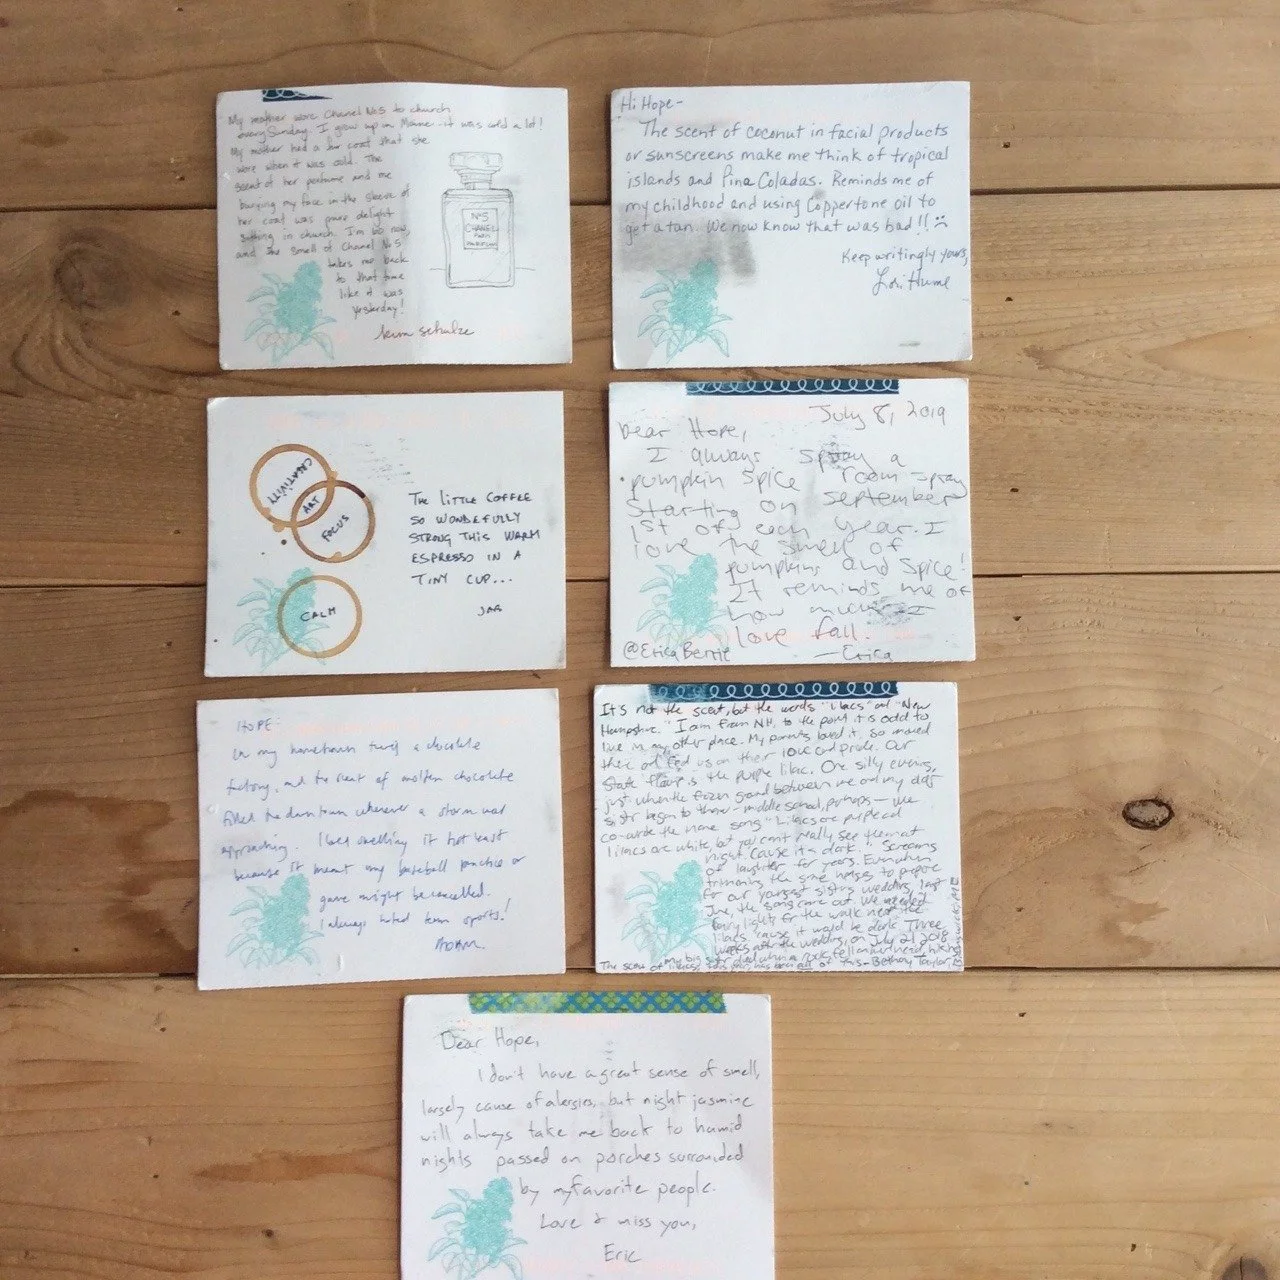 My mother wore Chanel No5 to church
every Sunday. I grew up in Maine - it was cold a lot!
My mother had a fur coat that she
wore when it was cold. The
scent of her perfume and me
burying my face in the sleeve of
her coat was pure delight
sitting in church. I'm 60 now,
and the smell of Chanel No5
takes me back
to that time
like it was
yesterday!
kim schulze
No5
CHANEL
PARFUM
Hi Hope-
The scent of coconut in facial products
or sunscreens make me think of tropical
islands and Pina Coladas. Reminds me of
my childhood and using Coppertone oil to
get a tan. We now know that was bad!!
Keep writingly yours,
Lori Hume
CREATIVITY
ART
FOCUS
CALM
THE LITTLE COFFEE
SO WONDEFULLY
STRONG THIS WARM
ESPRESSO IN A
TINY CUP...
JAG
July 8, 2019
Dear Hope,
I always spray a
pumpkin spice room spray
starting on september
1st of each year. I
love the smell of
pumpkins and spice!
It reminds me of
how much I
love fall.
@EricaBertie
—Erica
HOPE:
In my hometown a chocolate
factory, and the scent of molten chocolate
filled the downtown whenever a storm was
approaching. I loved smelling it not least
because it meant my baseball practice or
game might be cancelled.
I always hated team sports!
ADAM
It's not the scent, but the words "lilacs" and "New
Hampshire." I am from NH, to the point it is odd to
live in any other place. My parents loved it, so moved
there and fed us on their love and pride. Our
State flower is the purple lilac. One silly evening,
just when the frozen ground between me and my
sister began to thaw - middle school, perhaps - we
co-wrote the song "Lilacs are purple and
lilacs are white, but you can't really see them at
night. Cause it's dark." Screams
of laughter for years. Even when
trimming the same to prepare
for our youngest sister's wedding, last
June, the song came out. We needed
fairy lights for the walk near the
lilacs 'cause it would be dark. Three
weeks after the wedding, on July 21 2018
my big sister died when a rock fell hiking.
The scent of lilacs, this year, has been all of this - Bethany Taylor, Brunswick, ME
Dear Hope,
I don't have a great sense of smell,
largely cause of alergies, but night jasmine
will always take me back to humid
nights passed on porches surrounded
by my favorite people.
Love & miss you,
Eric